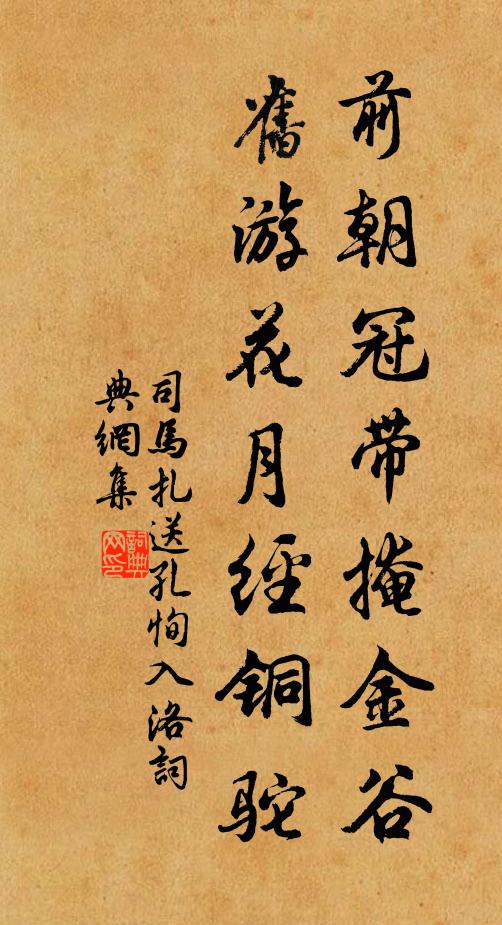 前朝冠带掩金谷
舊游花月經铜駝
司馬扎送孔恂入洛詞
典網集
詞典网印